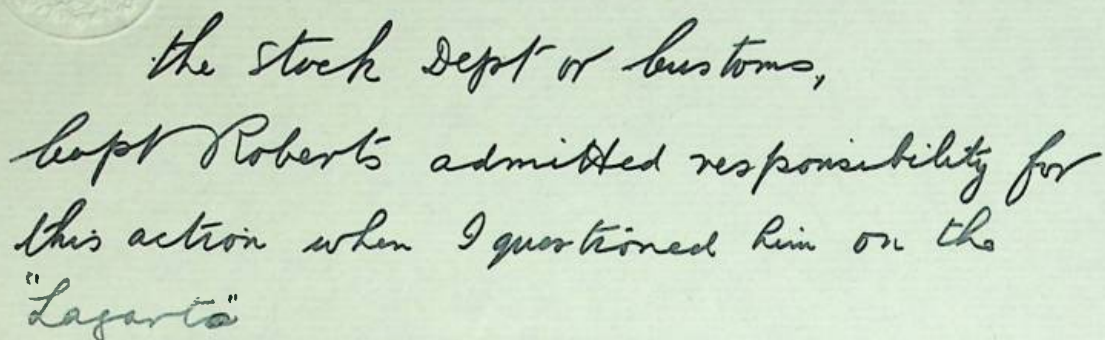 the Stock Dept or Customs,
Capt Roberts admitted responsibility for
this action when I questioned him on the
"Lagarto"